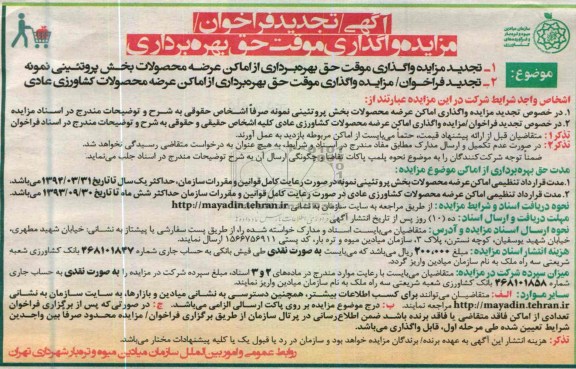 آگهی/ تجدید فراخوان/
مزایده واگذاری موقت حق بهره‌برداری
سازمان میادین میوه و تره‌بار و فرآورده‌های کشاورزی
موضوع:
۱_ تجدید مزایده واگذاری موقت حق بهره‌برداری از اماکن عرضه محصولات بخش پروتئینی نمونه
۲_ تجدید فراخوان/ مزایده واگذاری موقت حق بهره‌برداری از اماکن عرضه محصولات کشاورزی عادی
اشخاص واجد شرایط شرکت در این مزایده عبارتند از:
۱. در خصوص تجدید مزایده واگذاری اماکن عرضه محصولات بخش پروتئینی نمونه صرفاً اشخاص حقوقی به شرح و توضیحات مندرج در اسناد مزایده
۲. در خصوص تجدید فراخوان/مزایده واگذاری اماکن عرضه محصولات کشاورزی عادی کلیه اشخاص حقیقی و حقوقی به شرح و توضیحات مندرج در اسناد فراخوان
تذکر۱: متقاضیان قبل از ارائه پیشنهاد قیمت، حتماً می‌بایست از اماکن مربوطه بازدید به عمل آورند.
تذکر۲: در صورت عدم تکمیل و ارسال مدارک مطابق مفاد مندرج در اسناد و شرایط، به هیچ عنوان به درخواست متقاضی رسیدگی نخواهد شد.
ضمناً توجه شرکت‌کنندگان را به موضوع نحوه پلمپ پاکات تقاضا و چگونگی ارسال آن به شرح توضیحات مندرج در اسناد جلب می‌نماید.
مدت حق بهره‌برداری از اماکن موضوع مزایده:
۱. مدت قرارداد تنظیمی اماکن عرضه محصولات بخش پروتئینی نمونه در صورت رعایت کامل قوانین و مقررات سازمان حداکثر یک سال تا تاریخ ۱۳۹۴/۰۳/۳۱
۲. مدت قرارداد تنظیمی اماکن عرضه محصولات کشاورزی عادی در صورت رعایت کامل قوانین و مقررات سازمان حداکثر شش ماه تا تاریخ ۱۳۹۳/۰۹/۳۰
نحوه دریافت اسناد و شرایط مزایده: از طریق مراجعه به سایت سازمان به نشانی: http://mayadin.tehran.ir
مهلت دریافت و ارسال اسناد: ده (۱۰) روز پس از تاریخ انتشار آگهی
نحوه ارسال اسناد مزایده و آدرس: متقاضیان می‌بایست اسناد و مدارک خواسته شده را از طریق پست سفارشی یا پیشتاز به نشانی: خیابان شهید مطهری،
خیابان شهید یوسفیان، کوچه نسترن، پلاک ۳، سازمان میادین میوه و تره بار، کد پستی ۱۵۶۶۷۵۶۹۱۱ ارسال نمایند.
هزینه انتشار اسناد مزایده: مبلغ ۲۰۰۰۰۰ ریال می‌باشد که می‌بایست به صورت نقدی طی فیش بانکی به حساب جاری شماره ۴۶۸۱۰۱۸۳۷ بانک کشاورزی شعبه
شریعتی سه راه ملک به نام سازمان میادین واریز گردد.
میزان سپرده شرکت در مزایده: متقاضیان می‌بایست با رعایت موارد مندرج در ماده‌های ۲ و ۳ اسناد، مبلغ سپرده شرکت در مزایده را به صورت نقدی به حساب جاری
شماره ۴۶۸۱۰۱۸۵۸ بانک کشاورزی شعبه شریعتی سه راه ملک به نام سازمان میادین واریز نمایند.
سایر موارد: الف: متقاضیان می‌توانند برای کسب اطلاعات بیشتر، همچنین دسترسی به نشانی میادین و بازارها، به سایت سازمان به نشانی
http://mayadin.tehran.ir مراجعه نمایند. ب: درج موضوع مزایده بر روی پاکت ارسالی الزامی می‌باشد. ج: در صورتی که پس از برگزاری فراخوان
تعدادی از اماکن فاقد متقاضی یا فاقد برنده باشد ضمن اطلاع‌رسانی در پرتال سازمان از طریق برگزاری فراخوان/ مزایده محدود صرفاً بین واجدین
شرایط تعیین شده طی مرحله اول، قابل واگذاری می‌باشد.
تذکر: هزینه انتشار این آگهی به عهده برنده/ برندگان مزایده خواهد بود و سازمان در رد یا قبول یک یا کلیه پیشنهادات مختار می‌باشد.
روابط عمومی و امور بین‌الملل سازمان میادین میوه و تره‌بار شهرداری تهران